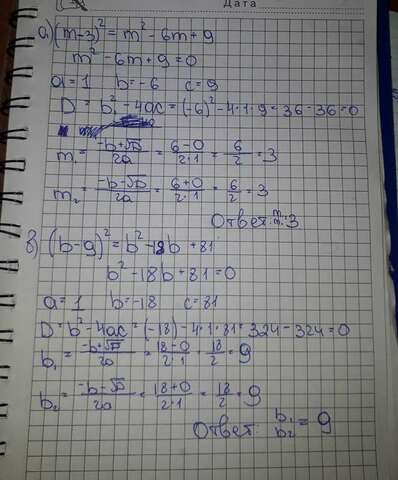 Дата
а) (m-3)² = m² - 6m + 9
m² - 6m + 9 = 0
a = 1 b = -6 c = 9
D = b² - 4ac = (-6)² - 4·1·9 = 36 - 36 = 0
m₁ = (-b+√D)/2a = (6-0)/2·1 = 6/2 = 3
m₂ = (-b-√D)/2a = (6+0)/2·1 = 6/2 = 3
Ответ: 3
в) (b-9)² = b² - 18b + 81
b² - 18b + 81 = 0
a = 1 b = -18 c = 81
D = b² - 4ac = (-18) - 4·1·81 = 324 - 324 = 0
b₁ = (-b+√D)/2a = (18-0)/2·1 = 18/2 = 9
b₂ = (-b-√D)/2a = (18+0)/2·1 = 18/2 = 9
Ответ: b₁ b₂ = 9